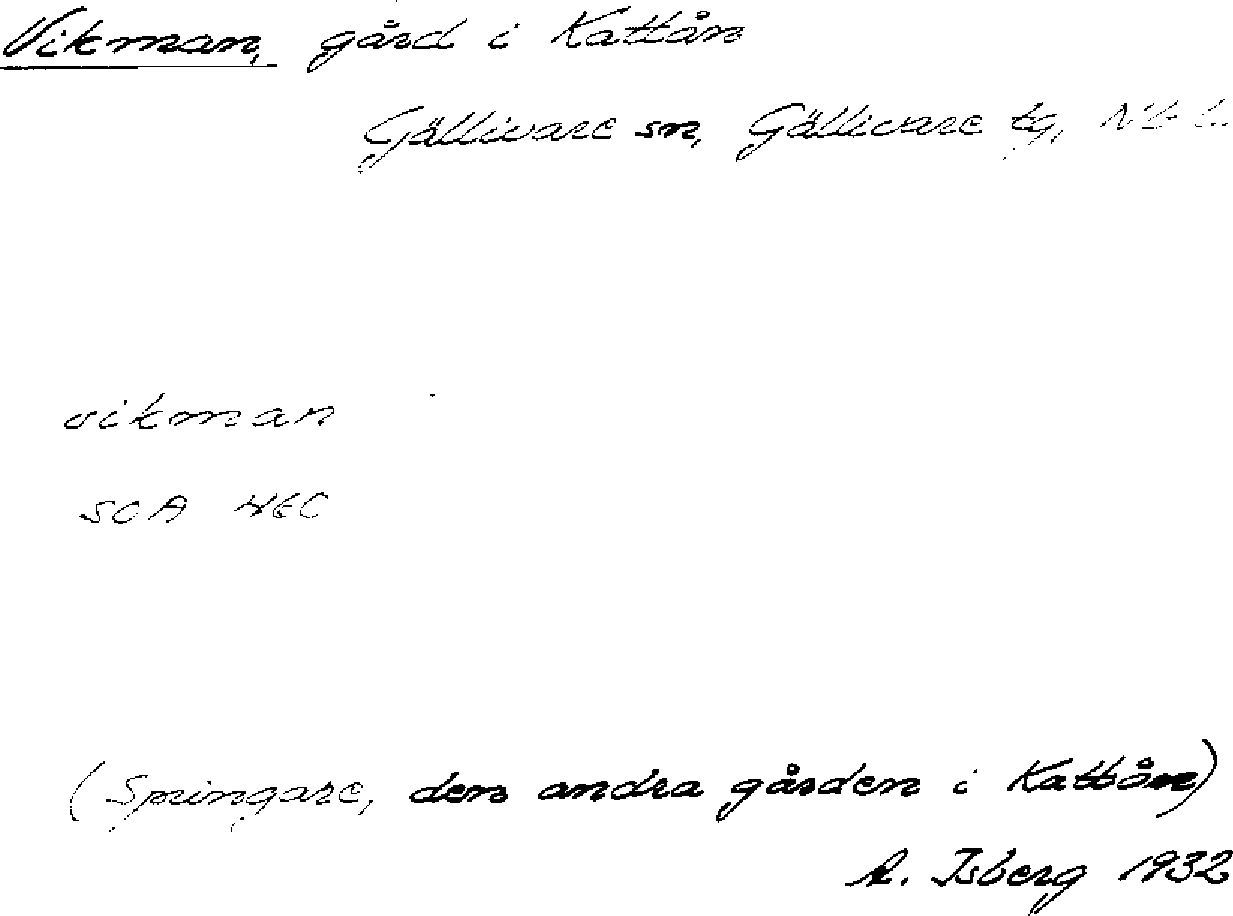 Vikman, gård i Kattån
Gällivare sn, Gällivare tg, Nb l.
vikman
SOA 4EC
(Springare, den andra gården i Kattån)
A. Isberg 1932